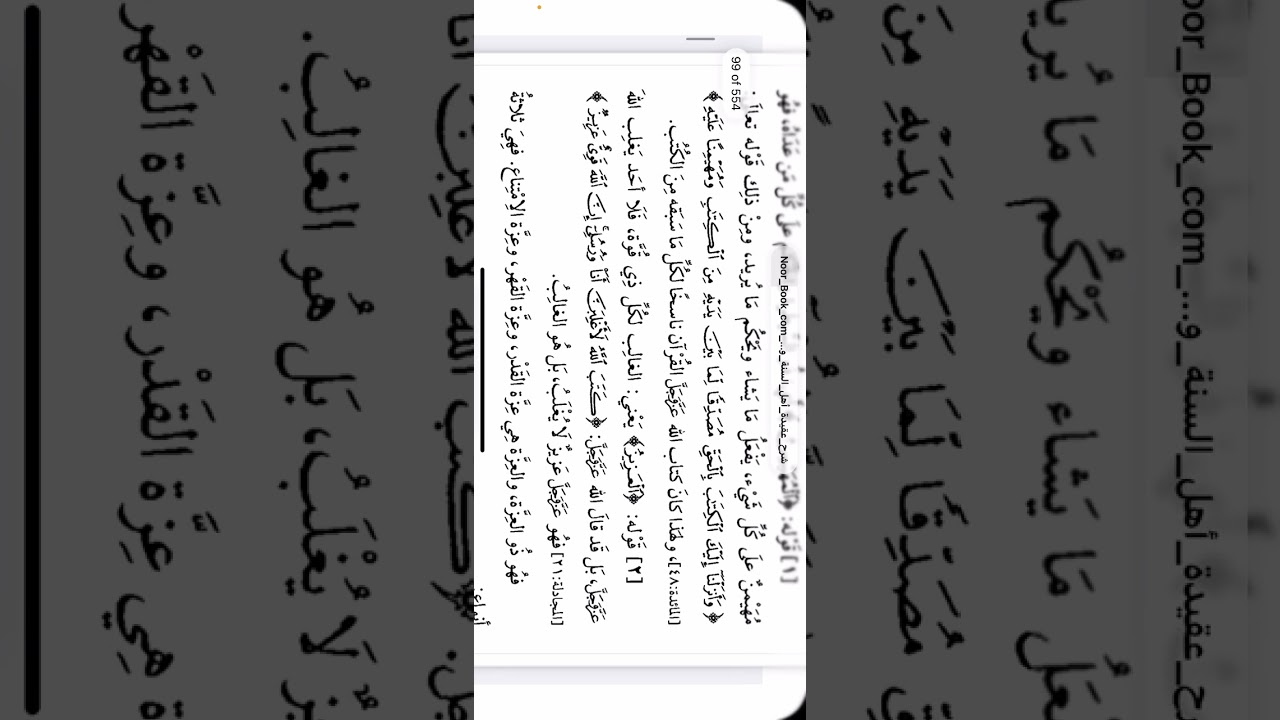 99 of 554
Noor_Book_com_...شرح_عقيدة_أهل_السنة_و
[١] قَوْله: ﴿ٱلْمُهَ
عَلَى كُلِّ مَن عَدَاهُ، فهُو
مُهَيْمِنٌ عَلَى كُلِّ شَيْءٍ، يَفْعَلُ مَا يَشاء ويَحْكُم ما يُريد، ومِنْ ذلِك قَوْله تعالَى:
﴿وَأَنزَلْنَآ إِلَيْكَ ٱلْكِتَٰبَ بِٱلْحَقِّ مُصَدِّقًا لِّمَا بَيْنَ يَدَيْهِ مِنَ ٱلْكِتَٰبِ وَمُهَيْمِنًا عَلَيْهِ﴾
[المائدة:٤٨]، وهَذا كانَ كتاب الله عَزَّوَجَلَّ القُرْآن ناسخًا لكُلِّ مَا سَبَقه مِنَ الكُتُب.
[٢] قَوْله: ﴿ٱلْعَزِيزُ﴾ يَعْني: الغالِب لكُلِّ ذِي قُوَّة، فَلَا أحَد يَغلب اللهَ
عَزَّوَجَلَّ، بَل قَد قالَ الله عَزَّوَجَلَّ: ﴿كَتَبَ ٱللَّهُ لَأَغْلِبَنَّ أَنَا۠ وَرُسُلِىٓ إِنَّ ٱللَّهَ قَوِىٌّ عَزِيزٌ﴾
[المجادلة:٢١] فهُو عَزَّوَجَلَّ عَزيزٌ لَا يُغْلَبُ، بَل هُو الغالِبُ.
فهُو ذُو العِزَّة، والعِزَّة هِي عِزَّة القَدْر، وعِزَّة القَهْر، وعِزة الامْتِناع. فهِيَ ثَلاثَةُ
أنواع: